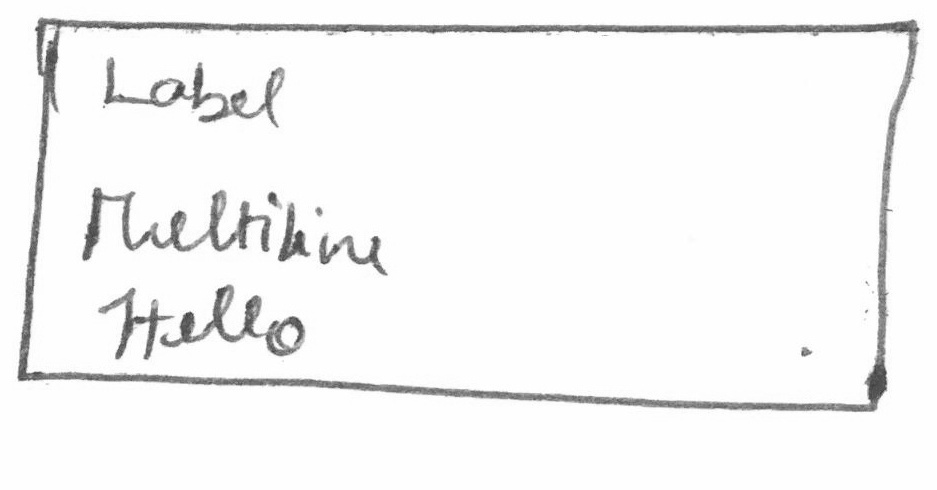 Label
Multiline
Hello